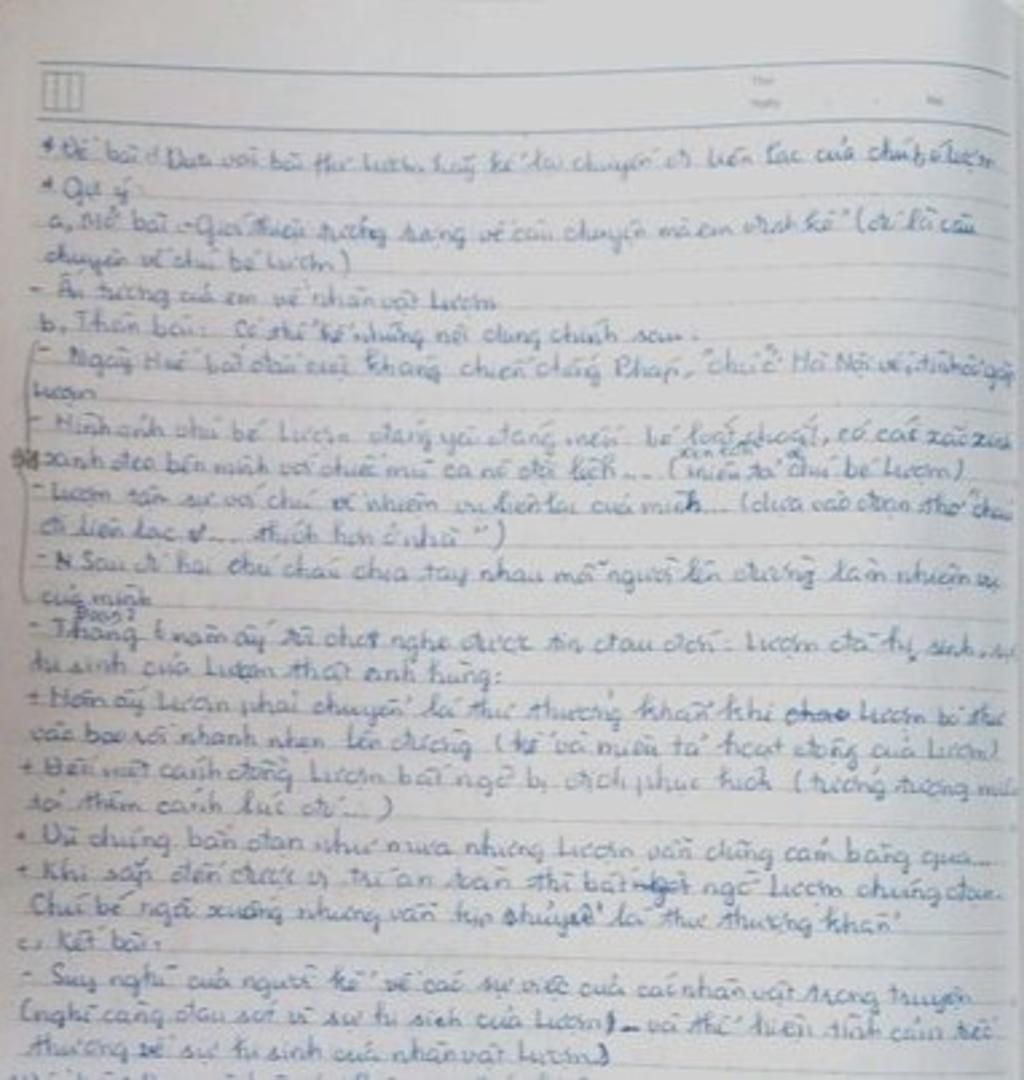 * Đề bài: Dựa vào bài thơ Lượm, hãy kể lại chuyến đi liên lạc của chú bé Lượm
* Gợi ý:
a, Mở bài - Giới thiệu tưởng tượng về câu chuyện mà em định kể (đó là câu
chuyện về chú bé Lượm)
- Ấn tượng của em về nhân vật Lượm
b, Thân bài: Có thể kể những nội dung chính sau:
- Ngày Huế bắt đầu cuộc kháng chiến chống Pháp, chú ở Hà Nội về, tình cờ gặp
Lượm
- Hình ảnh chú bé Lượm đáng yêu đáng mến bé loắt choắt, có cái xắc xinh
xinh đeo bên mình với chiếc mũ ca nô đội lệch... (miêu tả chú bé Lượm)
- Lượm tâm sự với chú về nhiệm vụ liên lạc của mình... (dựa vào đoạn thơ "cháu
đi liên lạc ... thích hơn ở nhà")
- Sau đó hai chú cháu chia tay nhau mỗi người lên đường làm nhiệm vụ
của mình
- Tháng 6 năm ấy tôi chợt nghe được tin đau đớn: Lượm đã hi sinh, sự
hi sinh của Lượm thật anh hùng:
+ Hôm ấy Lượm phải chuyển lá thư thượng khẩn khi Lượm bỏ thư
vào bao rồi nhanh nhẹn lên đường (kể và miêu tả hoạt động của Lượm)
+ Đến một cánh đồng Lượm bất ngờ bị địch phục kích (tưởng tượng miêu
tả thêm cảnh lúc đó...)
+ Dù chúng bắn đạn như mưa nhưng Lượm vẫn dũng cảm băng qua...
+ Khi sắp đến được vị trí an toàn thì bất ngờ Lượm chúng đạn.
Chú bé ngã xuống nhưng vẫn kịp chuyển lá thư thượng khẩn
c, Kết bài:
- Suy nghĩ của người kể về các sự việc của các nhân vật trong truyện
(nghĩ càng đau sót vì sự hi sinh của Lượm) - và thể hiện tình cảm tiếc
thương về sự hi sinh của nhân vật Lượm)